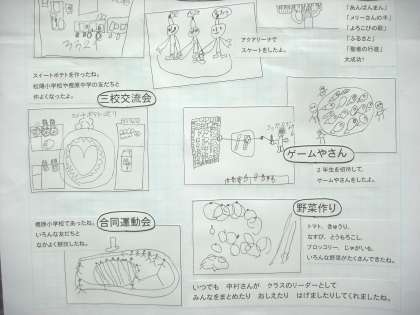 「あんぱんまん」
「メリーさんの羊」
「よろこびの歌」
「ふるさと」
「聖者の行進」
大成功!
アクアアリーナで
スケートをしたよ。
スイートポテトを作ったね。
松陽小学校や樫原中学の友だちと
仲よくなったよ。
三校交流会
スイートポテトづくり
ゲームやさん
2年生を招待して、
ゲームやさんをしたよ。
野菜作り
トマト、きゅうり、
なすび、とうもろこし、
ブロッコリー、じゃがいも、
いろんな野菜がたくさんできたね。
合同運動会
樫原小学校であったね。
いろんな友だちと
なかよく競技したね。
いつでも 中村さんが クラスのリーダーとして
みんなをまとめたり おしえたり はげましたりしてくれましたね。